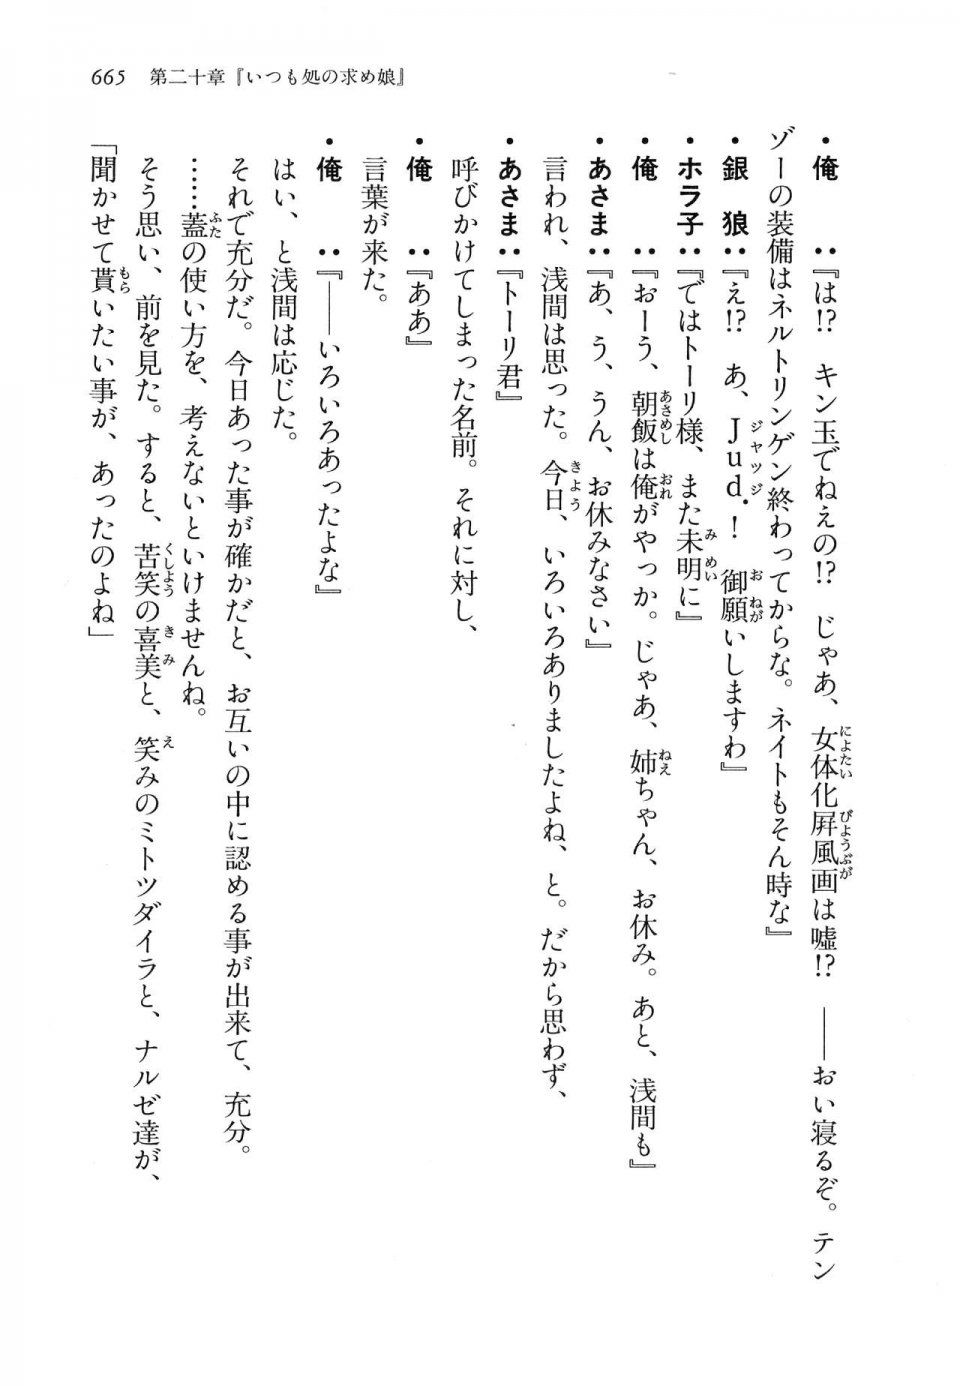 665　第二十章『いつも処の求め娘』
・俺　　：『は!?　キン玉でねえの!?　じゃあ、女体化屛風画は嘘!?　――おい寝るぞ。テン
ゾーの装備はネルトリンゲン終わってからな。ネイトもそん時な』
・銀　狼：『え!?　あ、Jud.！　御願いしますわ』
・ホラ子：『ではトーリ様、また未明に』
・俺　　：『おーう、朝飯は俺がやっか。じゃあ、姉ちゃん、お休み。あと、浅間も』
・あさま：『あ、う、うん、お休みなさい』
言われ、浅間は思った。今日、いろいろありましたよね、と。だから思わず、
・あさま：『トーリ君』
呼びかけてしまった名前。それに対し、
・俺　　：『ああ』
言葉が来た。
・俺　　：『――いろいろあったよな』
はい、と浅間は応じた。
それで充分だ。今日あった事が確かだと、お互いの中に認める事が出来て、充分。
……蓋の使い方を、考えないといけませんね。
そう思い、前を見た。すると、苦笑の喜美と、笑みのミトツダイラと、ナルゼ達が、
「聞かせて貰いたい事が、あったのよね」